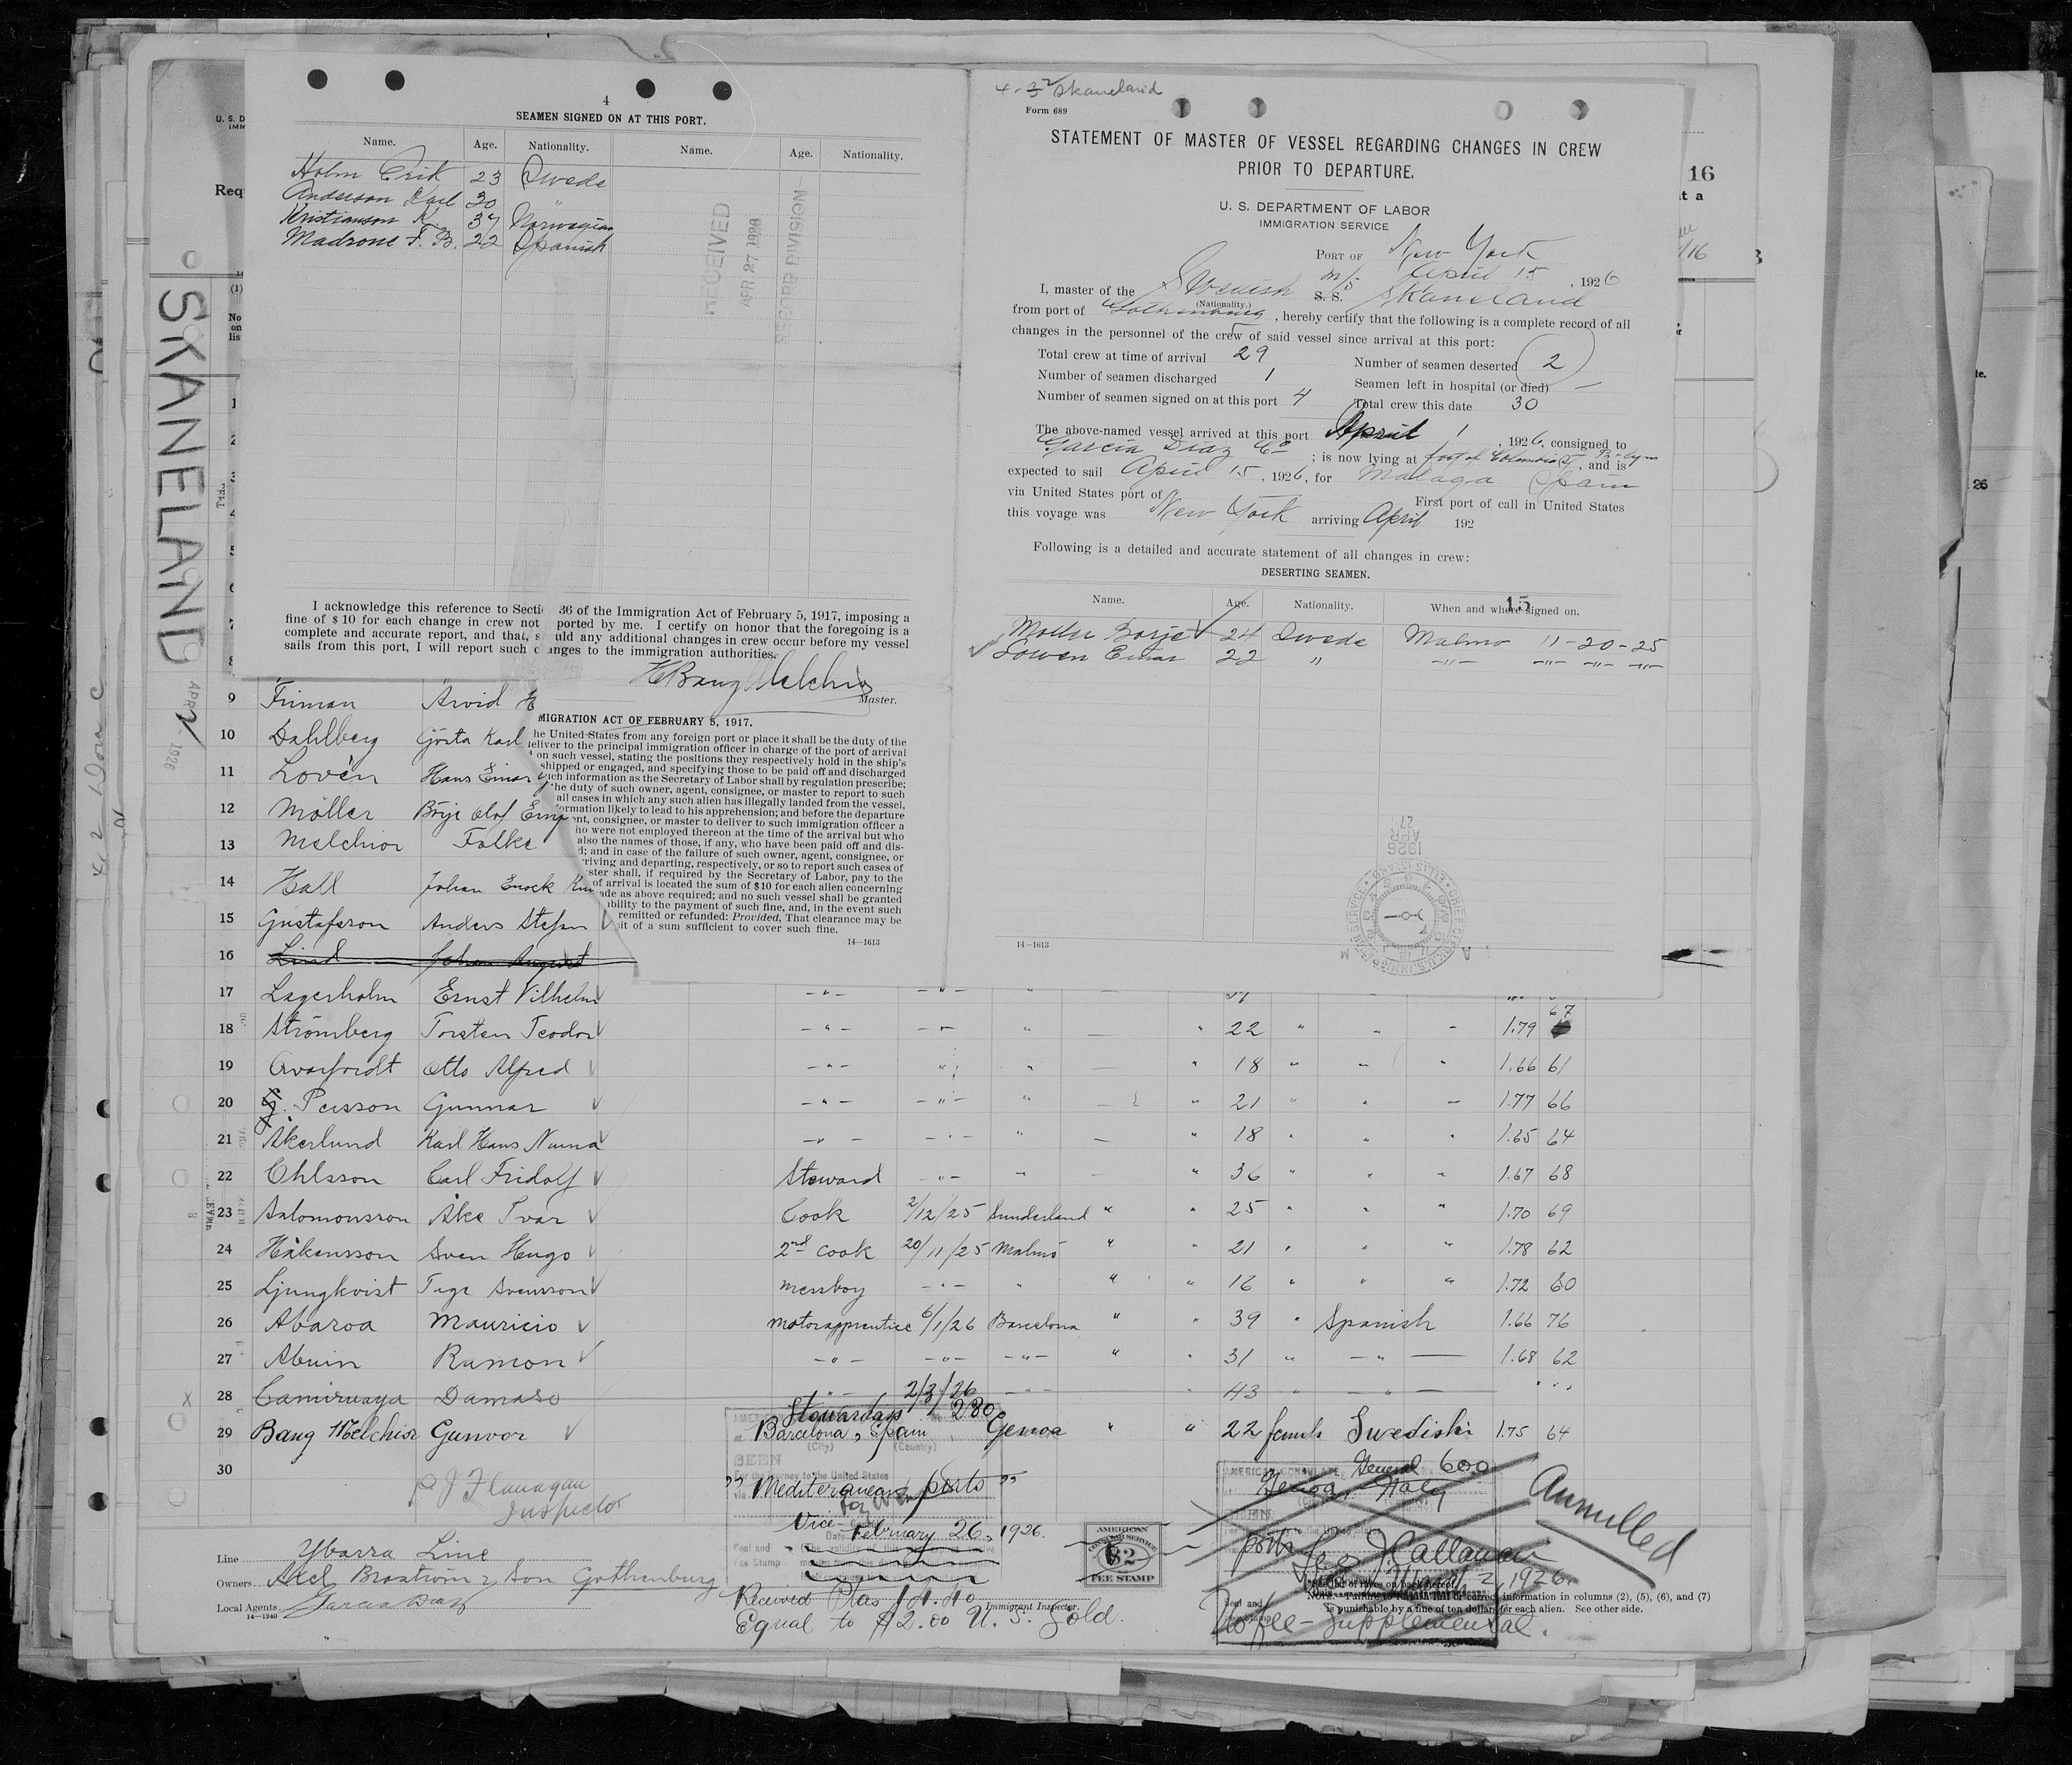 4
SEAMEN SIGNED ON AT THIS PORT.
Name. Age. Nationality. Name. Age. Nationality.
Holm Erik 23 Swede
Anderson Karl 30 "
Kristianson K. 37 Norwegian
Madrone F. B. 22 Spanish
RECEIVED
APR 27 1926
RECORD DIVISION
I acknowledge this reference to Secti 36 of the Immigration Act of February 5, 1917, imposing a
fine of $10 for each change in crew not ported by me. I certify on honor that the foregoing is a
complete and accurate report, and that, s uld any additional changes in crew occur before my vessel
sails from this port, I will report such c anges to the immigration authorities.
H Bang Melchior
Master.
MIGRATION ACT OF FEBRUARY 5, 1917.
he United States from any foreign port or place it shall be the duty of the
eliver to the principal immigration officer in charge of the port of arrival
on such vessel, stating the positions they respectively hold in the ship's
shipped or engaged, and specifying those to be paid off and discharged
uch information as the Secretary of Labor shall by regulation prescribe;
the duty of such owner, agent, consignee, or master to report to such
all cases in which any such alien has illegally landed from the vessel,
ormation likely to lead to his apprehension; and before the departure
nt, consignee, or master to deliver to such immigration officer a
ho were not employed thereon at the time of the arrival but who
also the names of those, if any, who have been paid off and dis-
d; and in case of the failure of such owner, agent, consignee, or
riving and departing, respectively, or so to report such cases of
ster shall, if required by the Secretary of Labor, pay to the
of arrival is located the sum of $10 for each alien concerning
ade as above required; and no such vessel shall be granted
bility to the payment of such fine, and, in the event such
remitted or refunded: Provided, That clearance may be
it of a sum sufficient to cover such fine.
14—1613
Skaneland
Form 689
STATEMENT OF MASTER OF VESSEL REGARDING CHANGES IN CREW
PRIOR TO DEPARTURE.
U. S. DEPARTMENT OF LABOR
IMMIGRATION SERVICE
PORT OF New York
April 15, 1926
I, master of the Swedish M/S S. S. Skaneland
(Nationality.)
from port of Gothenburg, hereby certify that the following is a complete record of all
changes in the personnel of the crew of said vessel since arrival at this port:
Total crew at time of arrival 29 Number of seamen deserted 2
Number of seamen discharged 1 Seamen left in hospital (or died) —
Number of seamen signed on at this port 4 Total crew this date 30
The above-named vessel arrived at this port April 1, 1926, consigned to
Garcia Diaz Co ; is now lying at foot of Columbia St, B'klyn, and is
expected to sail April 15, 1926, for Malaga Spain
via United States port of First port of call in United States
this voyage was New York arriving April 192
Following is a detailed and accurate statement of all changes in crew:
DESERTING SEAMEN.
Name. Age. Nationality. When and where signed on.
15
Moller Borje 24 Swede Malmo 11-20-25
Loven Einar 22 " -"- -"- -"- -"-
1926
APR
27
14—1613
16
SKANELAND
APR 2 1926
9 Firman Arvid
10 Dahlberg Gösta Karl
11 Lovén Hans Einar
12 Möller Börje Olof
13 Melchior Folke
14 Hall Johan Enock
15 Gustafsson Anders Stefan
16 Lind Johan August
17 Lagerholm Ernst Vilhelm -"- -"- "
18 Strömberg Torsten Teodor -"- " 22 " " " 1.79 67
19 Otto Alfred -"- " " " 18 " " " 1.66 61
20 Persson Gunnar -"- -"- " " 21 " " " 1.77 66
21 Åkerlund Karl Hans Numa -"- -"- " " 18 " " " 1.65 64
22 Ohlsson Carl Fridolf Steward -"- " " 36 " " " 1.67 68
23 Salomonsson Åke Ivar Cook 2/12/25 Sunderland " " 25 " " " 1.70 69
24 Håkansson Sven Hugo 2nd Cook 20/11/25 Malmö " " 21 " " " 1.78 62
25 Ljungkvist Tage Svensson messboy -"- " " " 16 " " " 1.72 60
26 Abaroa Mauricio motorapprentice 6/1/26 Barcelona " " 39 " Spanish 1.66 76
27 Abuin Ramon -"- -"- -"- " " 31 " -"- 1.68 62
28 Camiruaga Damaso -"- 2/3/26 -"- " 43 " -"-
29 Bang Melchior Gunvor Stewardess Genoa " " 22 female Swedish 1.75 64
30
P. J. Flanagan
Inspector
280
Barcelona, Spain
(City) (Country)
SEEN
For the journey to the United States
via
"Mediteranean ports"
Vice
February 26, 1926.
AMERICAN
CONSULAR SERVICE
$2
FEE STAMP
Received Ptas 14.40
Equal to $2.00 U. S. Gold.
Immigrant Inspector.
AMERICAN CONSULATE General 600
Genoa, Italy
SEEN
ports
Callanan
March 2, 1926.
No fee - Supplemental.
Annulled
Line Ybarra Line
Owners Axel Broström & Son Gothenburg
Local Agents Garcia Diaz
14—1240
See list of races on back hereof.
information in columns (2), (5), (6), and (7)
is punishable by a fine of ten dollars for each alien. See other side.